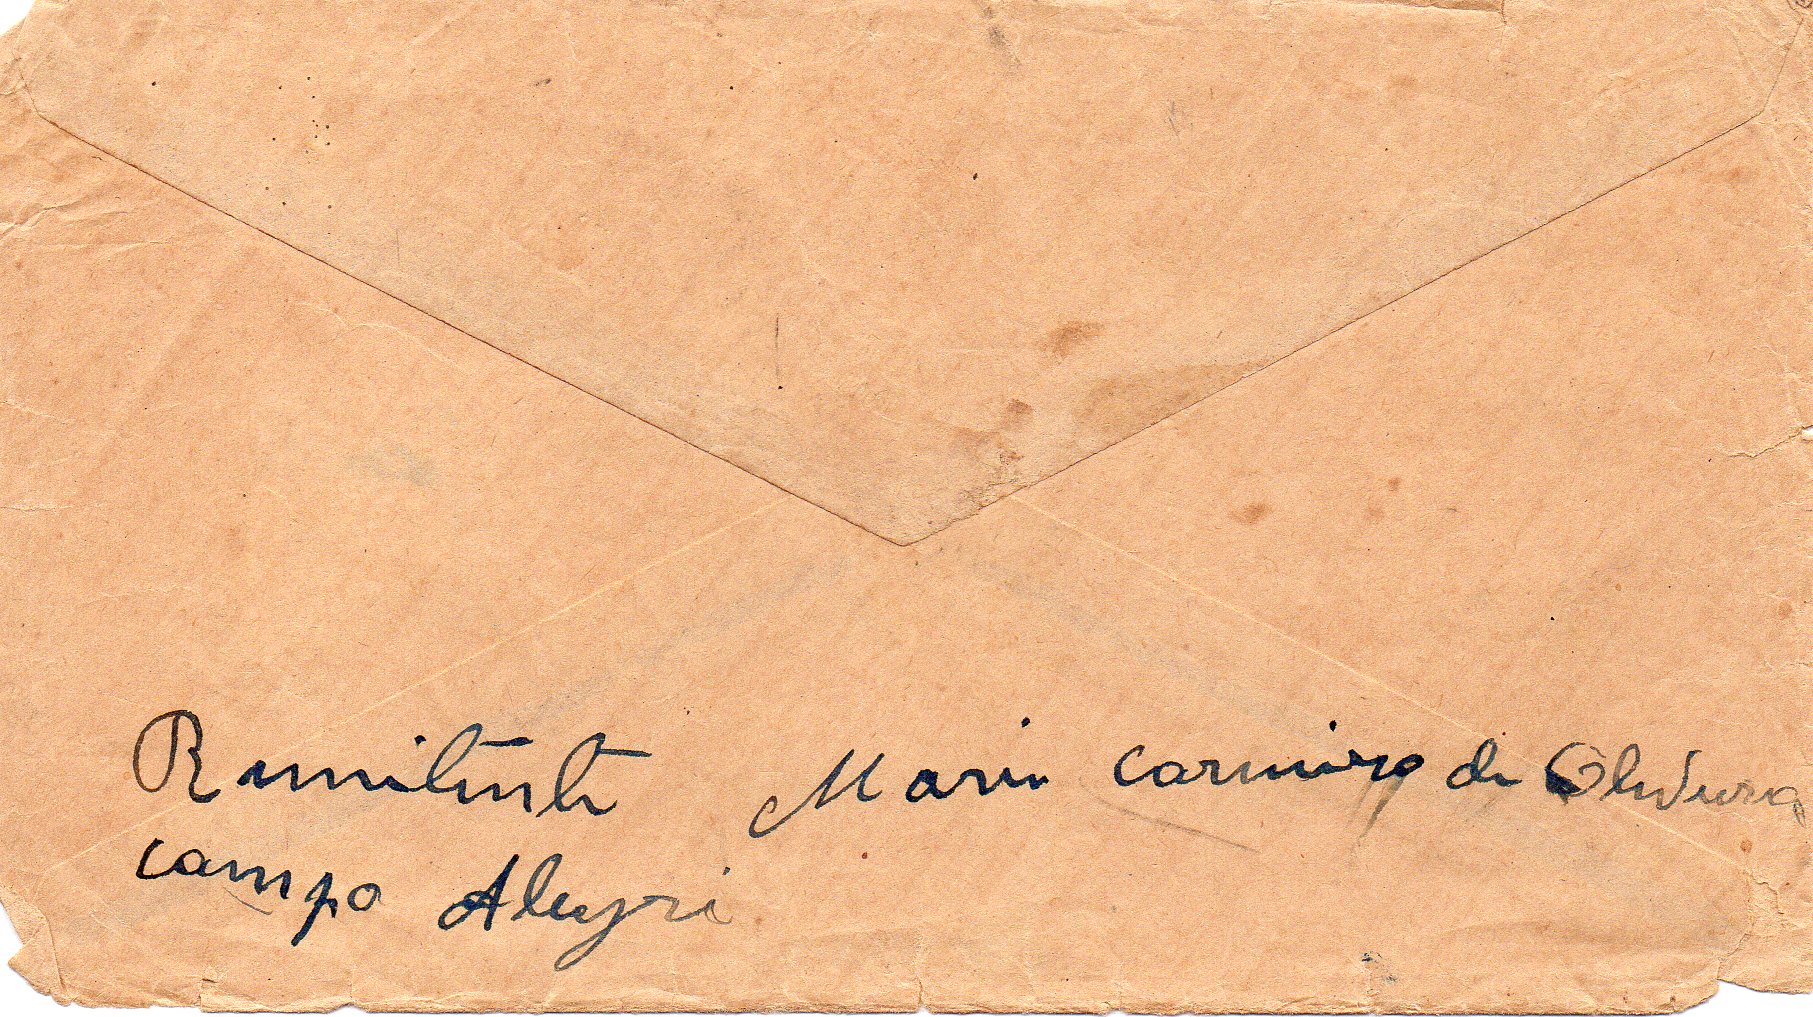 Remitente Maria carneiro de Oliveira
campo Alegre